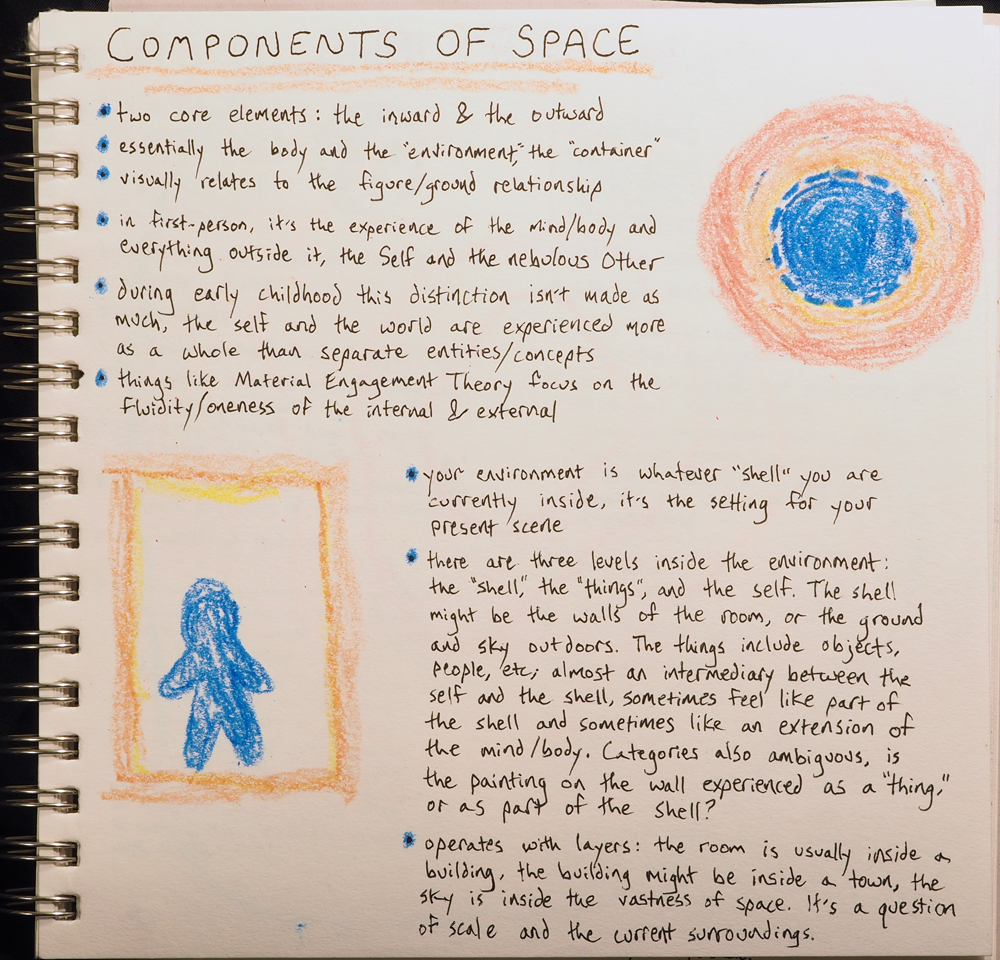 COMPONENTS OF SPACE
two core elements: the inward & the outward
essentially the body and the "environment," the "container"
visually relates to the figure/ground relationship
in first-person, it's the experience of the mind/body and
everything outside it, the Self and the nebulous Other
during early childhood this distinction isn't made as
much, the self and the world are experienced more
as a whole than separate entities/concepts
things like Material Engagement Theory focus on the
fluidity/oneness of the internal & external
your environment is whatever "shell" you are
currently inside, it's the setting for your
present scene
there are three levels inside the environment:
the "shell," the "things", and the self. The shell
might be the walls of the room, or the ground
and sky outdoors. The things include objects,
people, etc; almost an intermediary between the
self and the shell, sometimes feel like part of
the shell and sometimes like an extension of
the mind/body. Categories also ambiguous, is
the painting on the wall experienced as a "thing,"
or as part of the shell?
operates with layers: the room is usually inside a
building, the building might be inside a town, the
sky is inside the vastness of space. It's a question
of scale and the current surroundings.